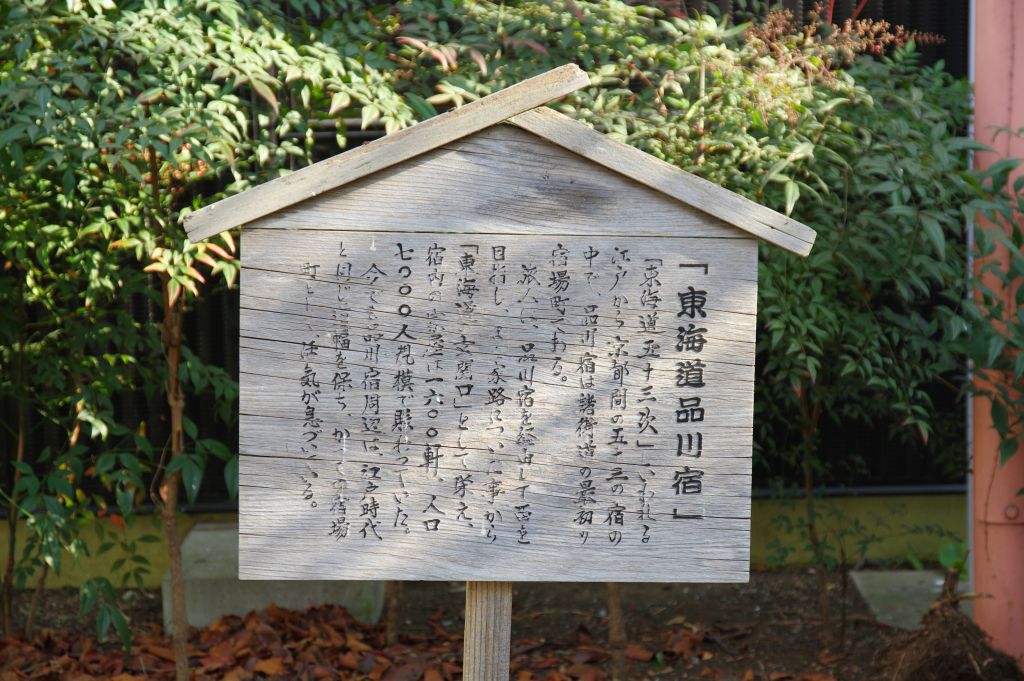 「東海道品川宿」
「東海道五十三次」といわれる
江戸から京都間の五十三の宿の
中で、品川宿は諸街道の最初の
宿場町である。
旅人は、品川宿を経由して西を
目指し、また家路についた事から
「東海道の玄関口」として栄え、
宿内の家屋は一六〇〇軒、人口
七〇〇〇人規模で賑わっていた。
今でも品川宿周辺は、江戸時代
と同じ道幅を保ち、かつての宿場
町として、活気が息づいている。